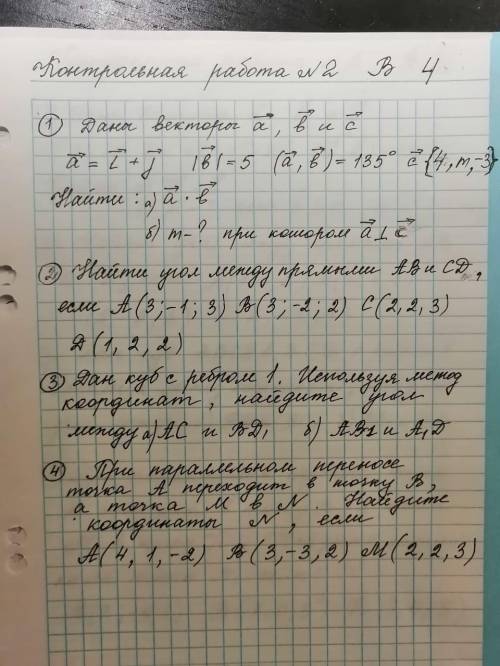 Контрольная работа №2 В 4
① Даны векторы a⃗, b⃗ и c⃗
a⃗ = i⃗ + j⃗ |b⃗| = 5 (a⃗, b⃗) = 135° c⃗ {4, m, -3}
Найти: а) a⃗ · b⃗
б) m - ? при котором a⃗ ⊥ c⃗
② Найти угол между прямыми AB и CD,
если A(3; -1; 3) B(3; -2; 2) C(2, 2, 3)
D(1, 2, 2)
③ Дан куб с ребром 1. Используя метод
координат, найдите угол
между а) AC и BD₁ б) AB1 и A₁D
④ При параллельном переносе
точка A переходит в точку B,
а точка M в N. Найдите
координаты N, если
A(4, 1, -2) B(3, -3, 2) M(2, 2, 3)